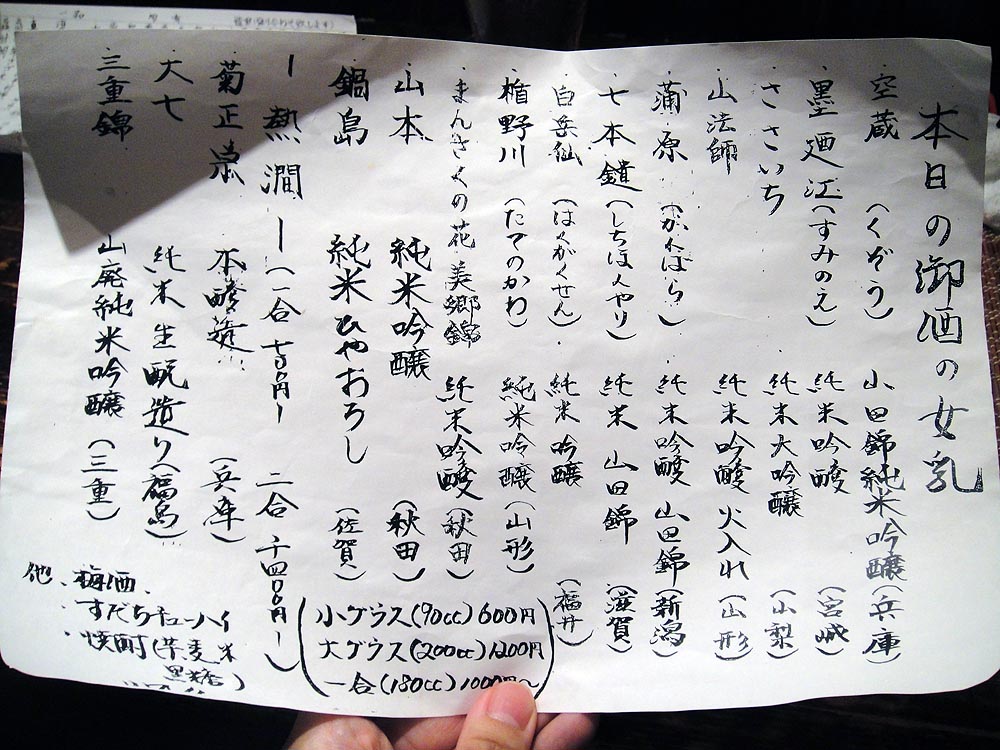 本日の御酒の女乳
・空蔵(くぞう) 山田錦純米吟醸(兵庫)
・墨廼江(すみのえ) 純米吟醸(宮城)
・ささいち 純米大吟醸(山梨)
・山法師 純米吟醸 火入れ(山形)
・蒲原(かんばら) 純米吟醸 山田錦(新潟)
・七本鎗(しちほんやり) 純米 山田錦(滋賀)
・白岳仙(はくがくせん) 純米吟醸(福井)
・楯野川(たてのかわ) 純米吟醸(山形)
・まんさくの花 美郷錦 純米吟醸(秋田)
・山本 純米吟醸(秋田)
・鍋島 純米ひやおろし(佐賀)
ー熱澗ー(一合 七百円ー 二合 千四〇〇円ー)
・菊正宗 本醸造(兵庫)
・大七 純米生酛造り(福島)
・三重錦 山廃純米吟醸(三重)
小グラス(90cc)600円
大グラス(200cc)1200円
一合(180cc)1000円〜
他、梅酒
・すだちチューハイ
・焼酎(芋麦米
黒糖)